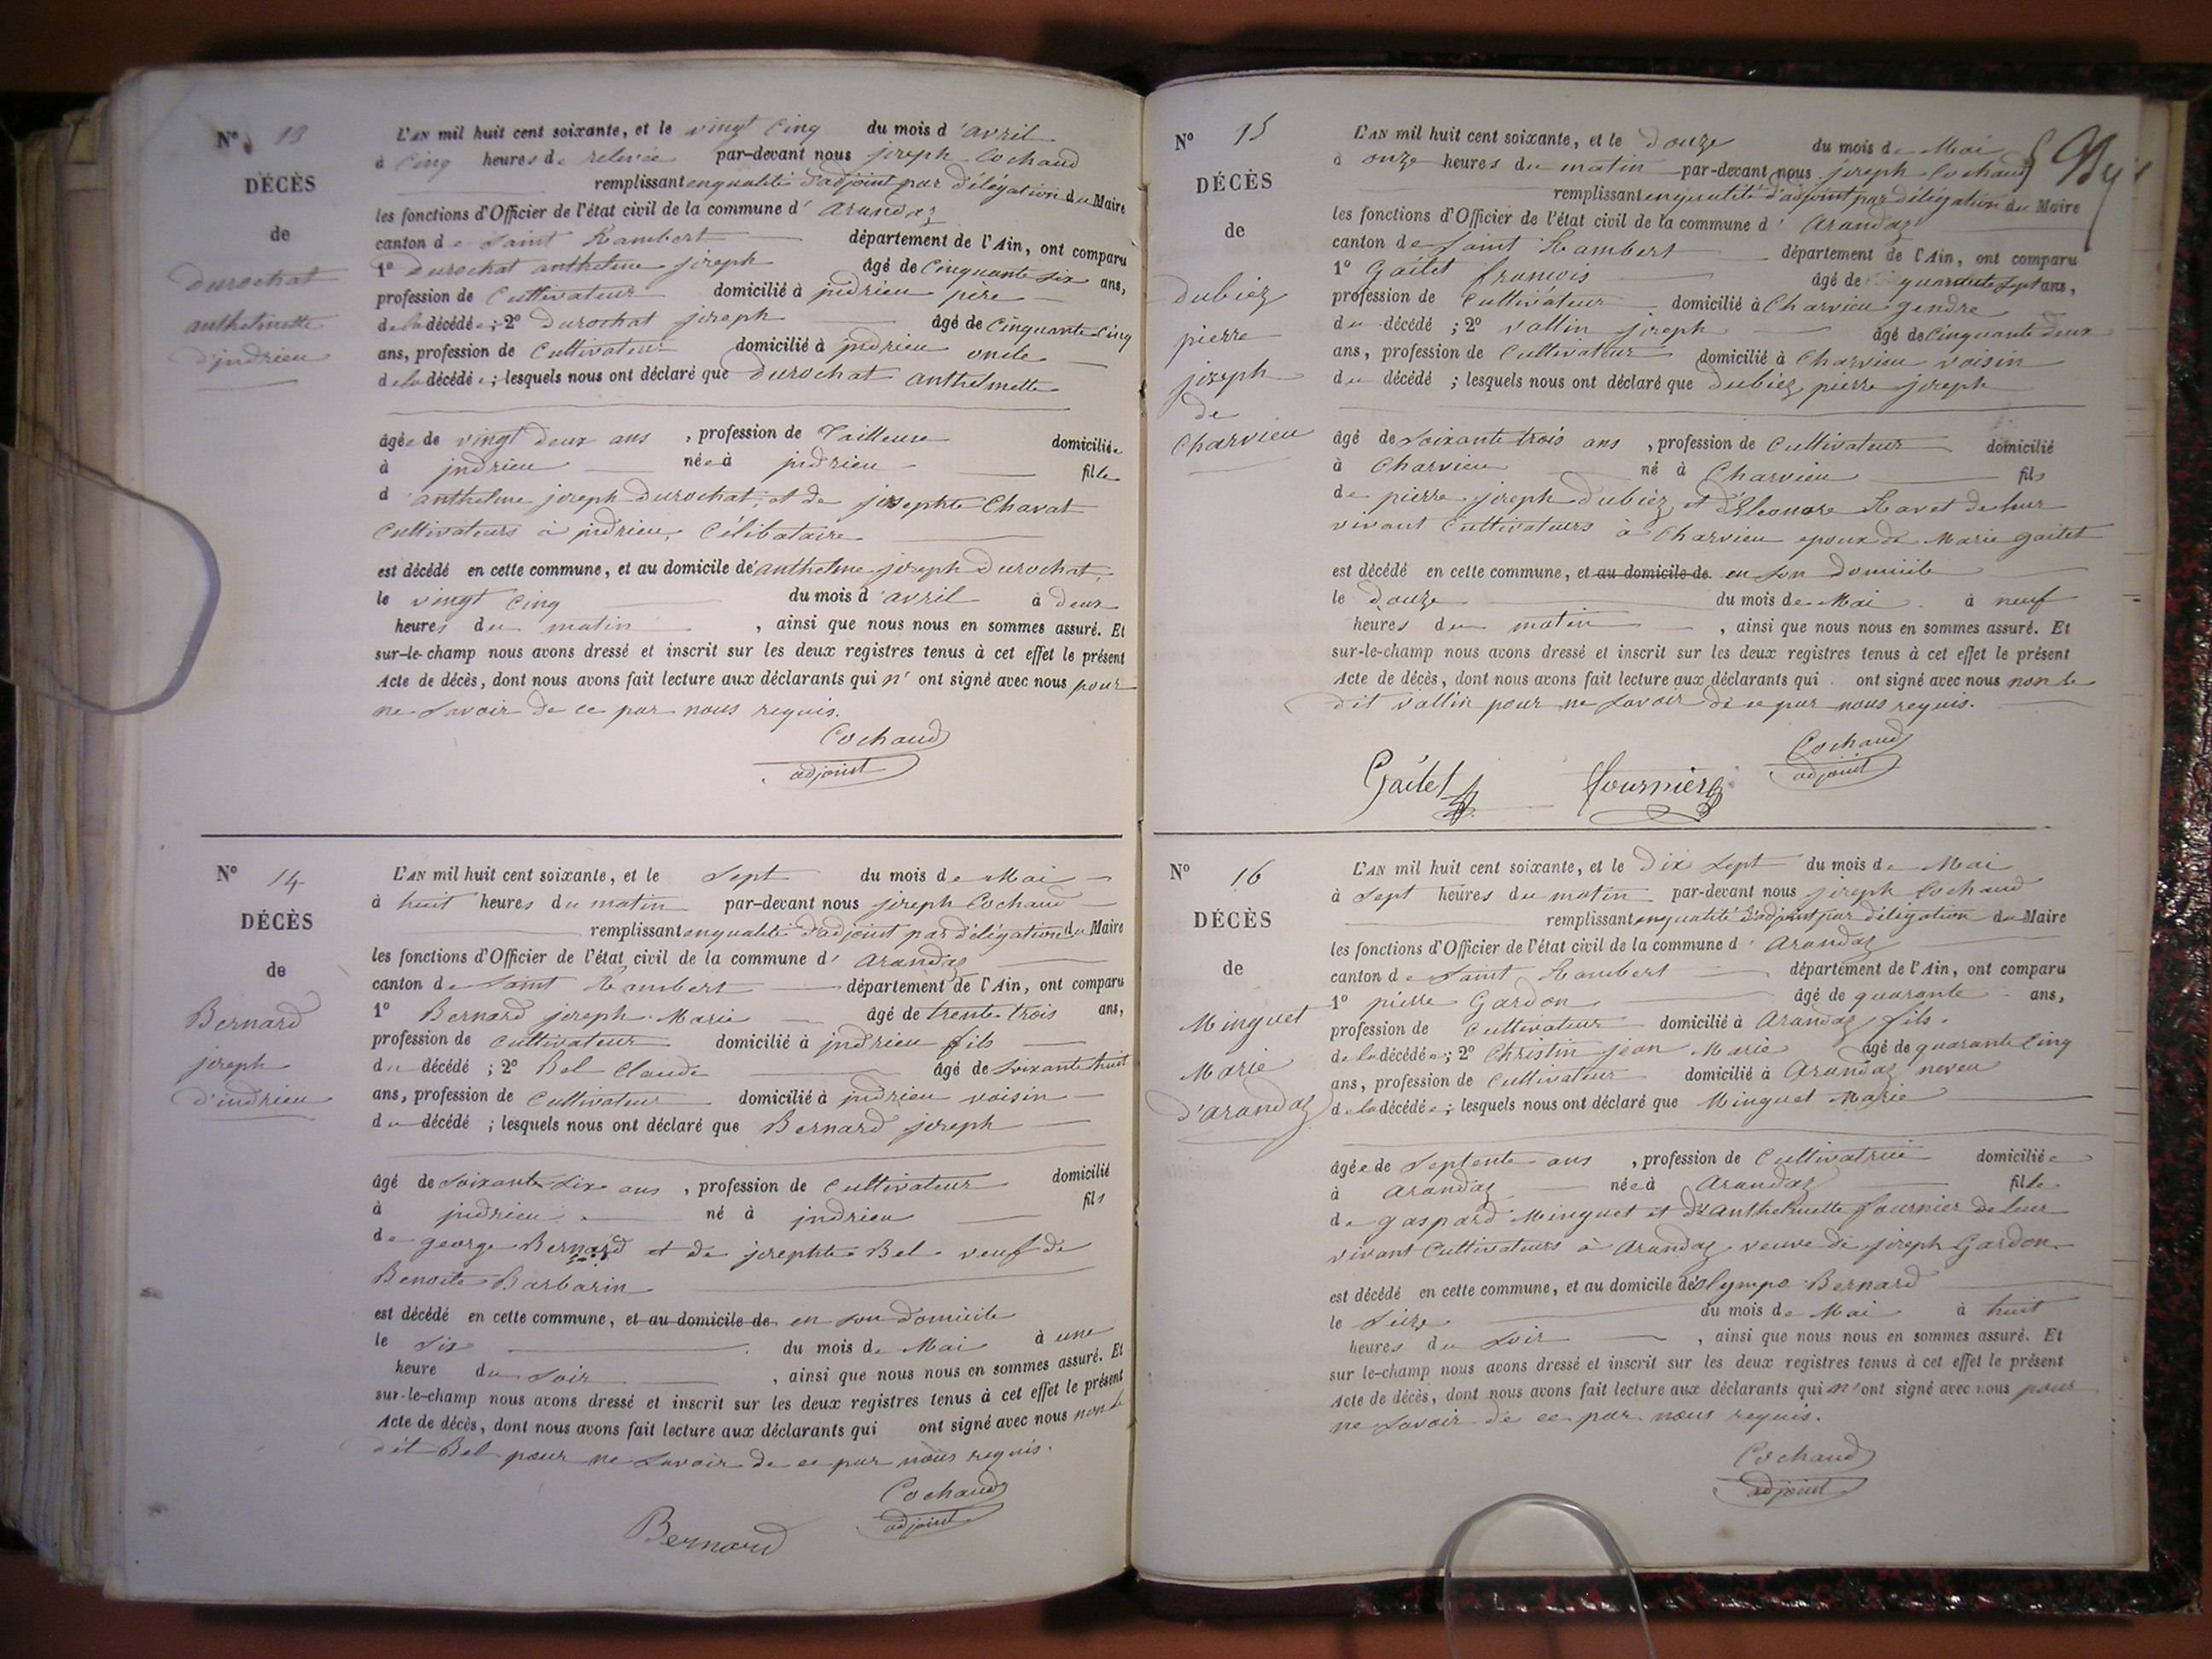 N° 13
DÉCÈS
de
Durochat
anthelmette
d'indrieu
L'AN mil huit cent soixante, et le vingt cinq du mois d'avril
à cinq heures de relevée par-devant nous joseph Cochaud
remplissant en qualité d'adjoint par délégation du Maire
les fonctions d'Officier de l'état civil de la commune d'Arandaz
canton de Saint Rambert département de l'Ain, ont comparu
1° Durochat anthelme joseph âgé de Cinquante six ans,
profession de Cultivateur domicilié à indrieu père
de la décédée; 2° Durochat joseph âgé de Cinquante cinq
ans, profession de Cultivateur domicilié à indrieu oncle
de la décédée; lesquels nous ont déclaré que Durochat anthelmette
âgée de vingt deux ans, profession de Tailleuse domiciliée
à indrieu née à indrieu fille
d'anthelme joseph Durochat, et de josephte Chavat
Cultivateurs à indrieu, Célibataire
est décédé en cette commune, et au domicile de anthelme joseph Durochat,
le vingt cinq du mois d'avril à deux
heures du matin, ainsi que nous nous en sommes assuré. Et
sur-le-champ nous avons dressé et inscrit sur les deux registres tenus à cet effet le présent
Acte de décès, dont nous avons fait lecture aux déclarants qui n'ont signé avec nous pour
ne savoir de ce par nous requis.
Cochaud
adjoint
N° 14
DÉCÈS
de
Bernard
joseph
d'indrieu
L'AN mil huit cent soixante, et le sept du mois de Mai
à huit heures du matin par-devant nous joseph Cochaud
remplissant en qualité d'adjoint par délégation du Maire
les fonctions d'Officier de l'état civil de la commune d'Arandaz
canton de Saint Rambert département de l'Ain, ont comparu
1° Bernard joseph Marie âgé de trente trois ans,
profession de cultivateur domicilié à indrieu fils
du décédé; 2° Bel Claude âgé de soixante huit
ans, profession de Cultivateur domicilié à indrieu voisin
du décédé; lesquels nous ont déclaré que Bernard joseph
âgé de soixante six ans, profession de Cultivateur domicilié
à indrieu né à indrieu fils
de george Bernard et de josephte Bel veuf de
Benoite Barbarin
est décédé en cette commune, et au domicile de en son domicile
le six du mois de Mai à une
heure du soir, ainsi que nous nous en sommes assuré. Et
sur-le-champ nous avons dressé et inscrit sur les deux registres tenus à cet effet le présent
Acte de décès, dont nous avons fait lecture aux déclarants qui ont signé avec nous non le
dit Bel pour ne savoir de ce par nous requis.
Cochaud
adjoint
Bernard
N° 15
DÉCÈS
de
Dubiez
pierre
joseph
de
Charvieu
L'AN mil huit cent soixante, et le Douze du mois de Mai
à onze heures du matin par-devant nous joseph Cochaud
remplissant en qualité d'adjoint par délégation du Maire
les fonctions d'Officier de l'état civil de la commune d'Arandaz
canton de Saint Rambert département de l'Ain, ont comparu
1° Gaitet françois âgé de quarante sept ans,
profession de Cultivateur domicilié à Charvieu gendre
du décédé; 2° Vallin joseph âgé de Cinquante deux
ans, profession de Cultivateur domicilié à Charvieu voisin
du décédé; lesquels nous ont déclaré que Dubiez pierre joseph
âgé de Soixante trois ans, profession de Cultivateur domicilié
à Charvieu né à Charvieu fils
de pierre joseph Dubiez et d'Eleonore Ravet de leur
vivant Cultivateurs à Charvieu epoux de Marie Gaitet
est décédé en cette commune, et au domicile de en son domicile
le Douze du mois de Mai à neuf
heures du matin, ainsi que nous nous en sommes assuré. Et
sur-le-champ nous avons dressé et inscrit sur les deux registres tenus à cet effet le présent
Acte de décès, dont nous avons fait lecture aux déclarants qui ont signé avec nous non le
dit Vallin pour ne savoir de ce par nous requis.
Cochaud
adjoint
Gaitet Fournier
N° 16
DÉCÈS
de
Minguet
Marie
d'arandaz
L'AN mil huit cent soixante, et le Dix sept du mois de Mai
à sept heures du matin par-devant nous joseph Cochaud
remplissant en qualité d'adjoint par délégation du Maire
les fonctions d'Officier de l'état civil de la commune d'Arandaz
canton de Saint Rambert département de l'Ain, ont comparu
1° pierre Gardon âgé de quarante ans,
profession de Cultivateur domicilié à Arandaz fils.
de la décédée; 2° Christin jean Marie âgé de quarante cinq
ans, profession de Cultivateur domicilié à Arandaz neveu
de la décédée; lesquels nous ont déclaré que Minguet Marie
âgée de septente ans, profession de Cultivatrice domiciliée
à arandaz née à Arandaz fille
de gaspard Minguet et d'anthelmette fournier de leur
vivant Cultivateurs à Arandaz veuve de joseph Gardon
est décédé en cette commune, et au domicile de olympe Bernard
le seize du mois de Mai à huit
heures du soir, ainsi que nous nous en sommes assuré. Et
sur le-champ nous avons dressé et inscrit sur les deux registres tenus à cet effet le présent
Acte de décès, dont nous avons fait lecture aux déclarants qui n'ont signé avec nous pour
ne savoir de ce par nous requis.
Cochaud
adjoint